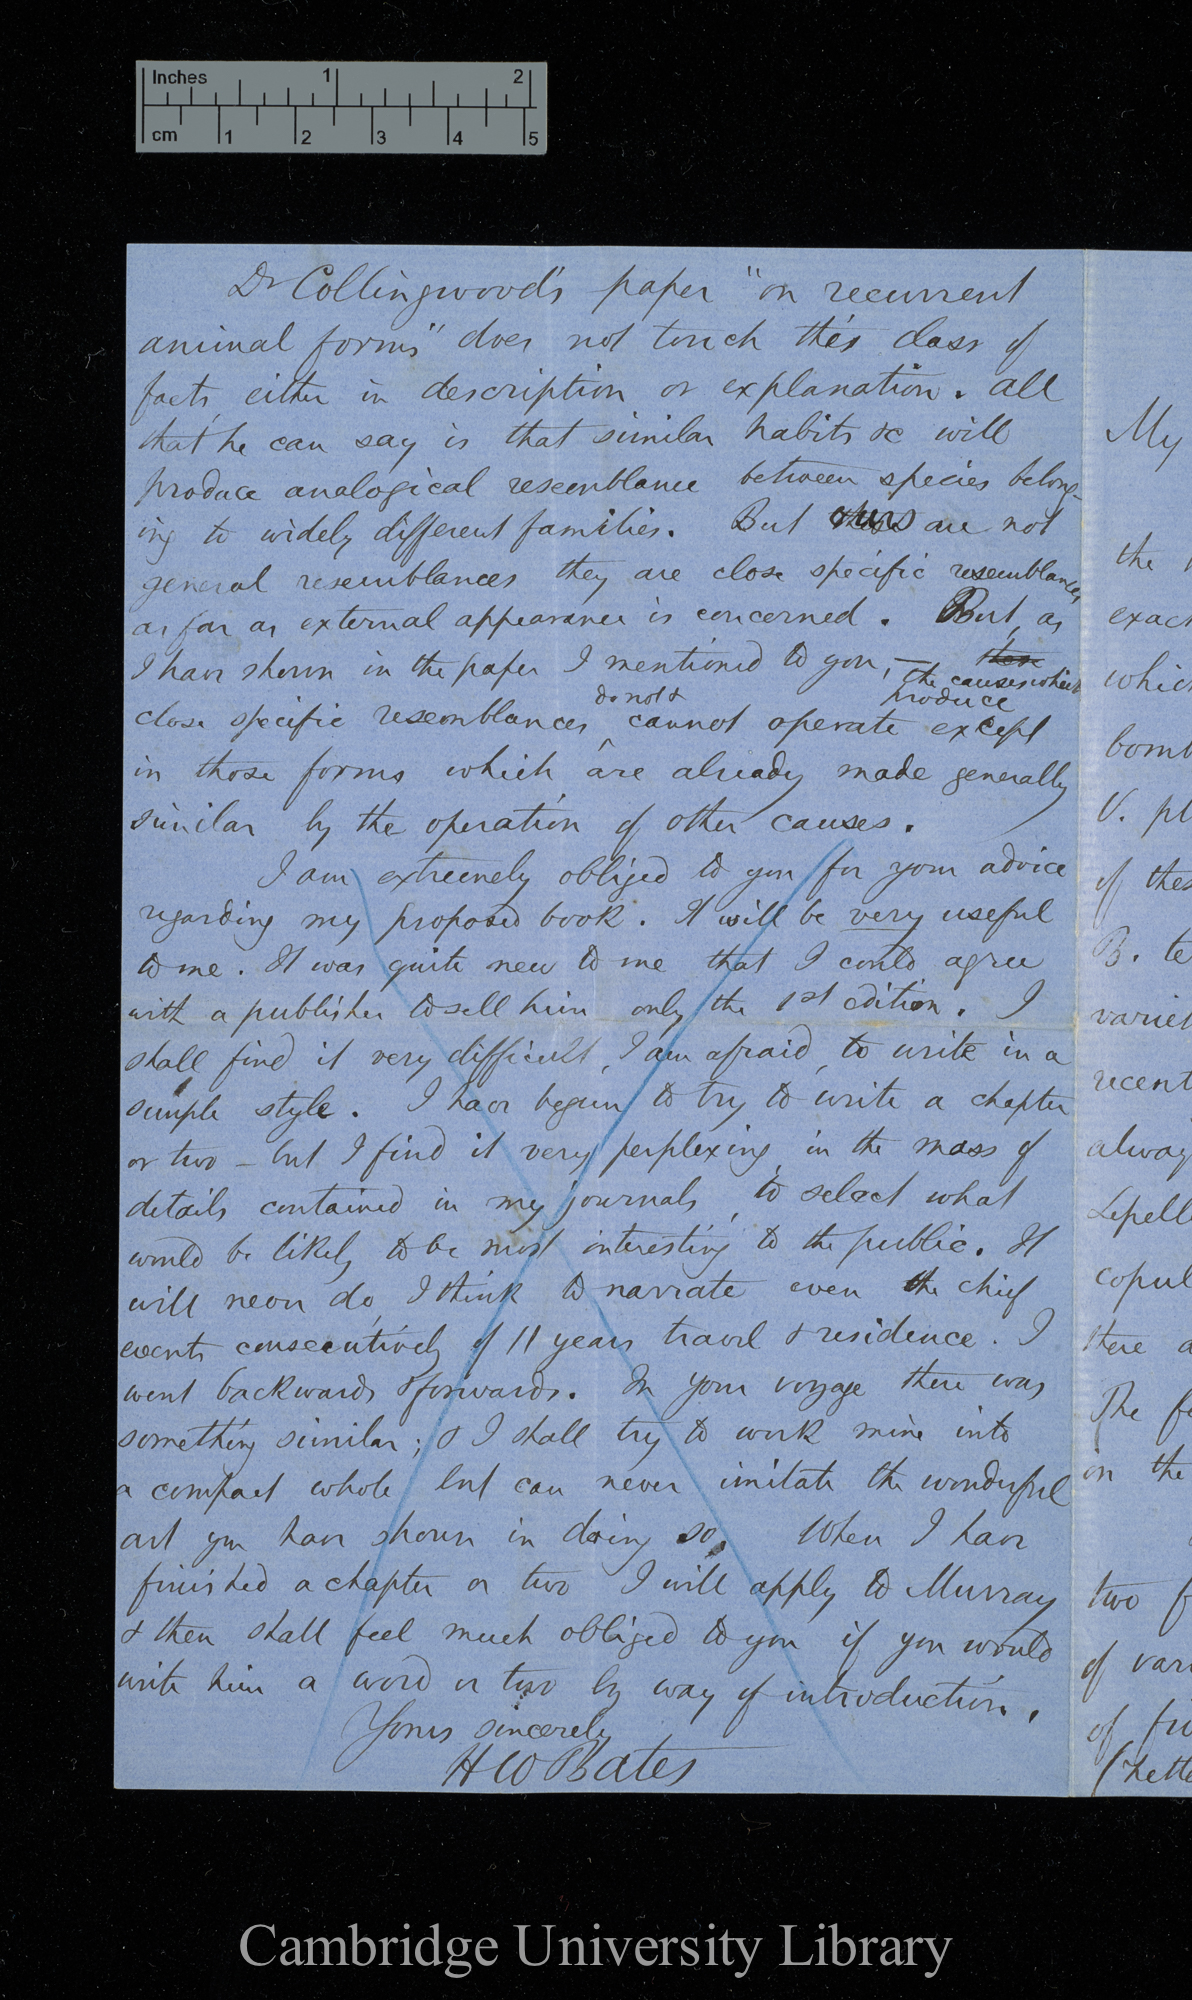 Inches 1 2
cm 1 2 3 4 5
Dr Collingwood's paper "on recurrent
animal forms" does not touch this class of
facts, either in description or explanation. All
that he can say is that similar habits &c will
produce analogical resemblance between species belong-
ing to widely different families. But ours are not
general resemblances they are close specific resemblances
as far as external appearance is concerned. But, as
I have shown in the paper I mentioned to you, — these
the causes which
do not & produce
close specific resemblances, cannot operate except
in those forms which are already made generally
similar by the operation of other causes.
I am extremely obliged to you for your advice
regarding my proposed book. It will be very useful
to me. It was quite new to me that I could agree
with a publisher to sell him only the 1st edition. I
shall find it very difficult, I am afraid, to write in a
simple style. I have begun to try to write a chapter
or two – but I find it very perplexing in the mass of
details contained in my journals, to select what
would be likely to be most interesting to the public. It
will never do, I think to narrate even the chief
events consecutively of 11 years travel & residence. I
went backwards & forwards. In your voyage there was
something similar; & I shall try to work mine into
a compact whole but can never imitate the wonderful
art you have shown in doing so. When I have
finished a chapter or two I will apply to Murray
& then shall feel much obliged to you if you would
write him a word or two by way of introduction.
Yours sincerely
H W Bates
My
the
exact
which
bomb
V. pl
of thes
B. te
variet
recent
alway
Lepell
copul
there a
The fe
in the
two f
of vari
of fu
(Lette
Cambridge University Library